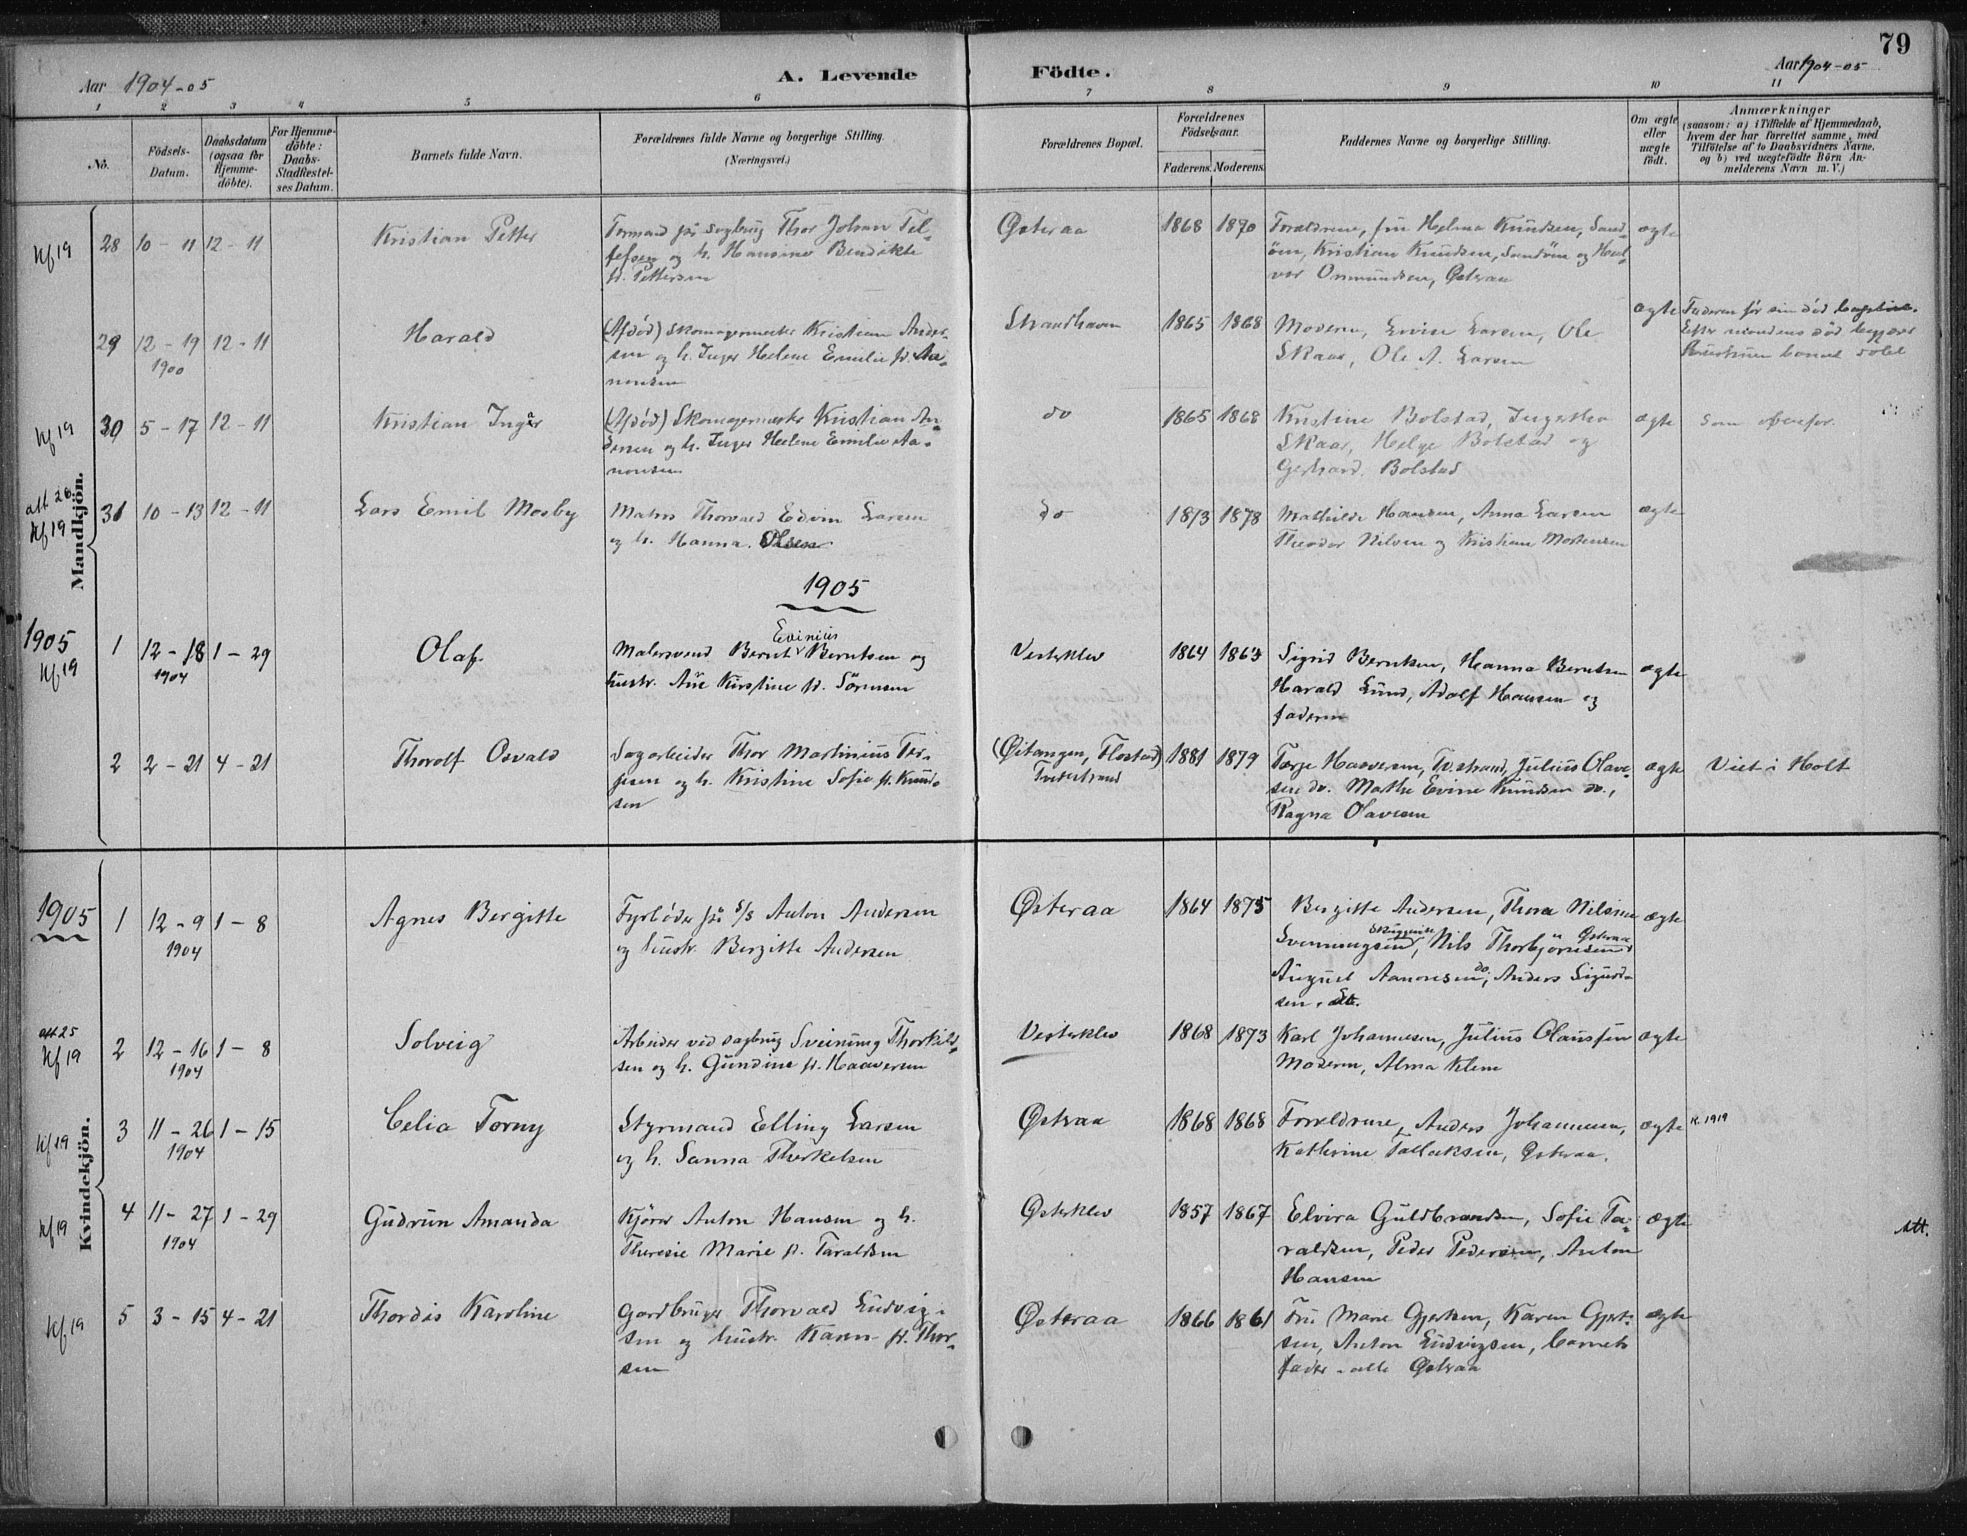 79
Aar 1904-05 A. Levende Födte. Aar 1904-05
1 2 3 4 5 6 7 8 9 10 11
No.
Födsels-Datum.
Daabsdatum (ogsaa for Hjemme-döbte).
For Hjemme-döbte: Daabs-Stadfæstel-ses Datum.
Barnets fulde Navn.
Forældrenes fulde Navne og borgerlige Stilling.
(Næringsvei.)
Forældrenes Bopæl.
Forældrenes Födselsaar.
Faderens. Moderens.
Faddernes Navne og borgerlige Stilling.
Om ægte eller uægte födt.
Anmærkninger
(saasom: a) i Tilfælde af Hjemmedaab,
hvem der har forrettet samme, med
Tilföielse af to Daabsvidners Navne,
og b) ved uægtefödte Börn An-
melderens Navn m. V.)
Mandkjön.
Kf 19 28 10-11 12-11 Kristian Petter
Formand på sagbrug Thor Johan Tel-
lefsen og h. Hansine Bendikte
f. Pettersen
Østeraa 1868 1870
Forældrene, fru Helma Knudsen, Sand-
öen, Kristian Knudsen, Sandöen og Hal-
vor Onmundsen, Østeraa
ægte
29 12-19 1900 12-11 Harald
(Afdöd) Skomagermester Kristian Ander-
sen og h. Inger Helene Emilie f. Aa-
nonsen
Strandhaven 1865 1868
Moderen, Evine Larsen, Ole
Skaar, Ole A. Larsen
ægte
Faderen før sin död
Efter mandens död
Kf 19 30 5-17 12-11 Kristian Inger
(Afdöd) Skomagermester Kristian An-
dersen og h. Inger Helene Emilie Aa-
nonsen
do 1865 1868
Kristine Bolstad, Ingertha
Skaar, Helge Bolstad og
Gerhard Bolstad
ægte som ovenfor.
att 26 Kf 19 31 10-13 12-11 Lars Emil Mosby
Matros Thorvald Edvin Larsen
og h. Hanna Olsen
do 1873 1878
Mathilde Hansen, Anna Larsen
Theodor Nilsen og Kristian Mortensen
ægte
1905
1905 Kf 19 1 12-18 1904 1-29 Olaf
Evinius
Malersvend Bernt Berntsen og
hustr. Ane Kirstine f. Sörensen
Vesterklev 1864 1863
Sigrid Berntsen, Hanna Berntsen
Harald Lund, Adolf Hansen og
faderen
ægte
2 2-21 4-21 Thorolf Osvald
Sagarbeider Thor Martinius Ter-
jesen og h. Kristine Sofie f. Knud-
sen
(Øitangen, Flostad)
Tvedestrand
1881 1879
Terje Haaversen, Tv.strand, Julius Olave-
sen do. Mathe Evine Knudsen do.,
Ragna Olavesen
ægte Viet i Holt
Kvindekjön.
1905 1 12-9 1904 1-8 Agnes Bergitte
Fyrböder på S/S Anton Andersen
og hustr. Bergitte Andersen
Østeraa 1864 1875
Bergitte Andersen, Thora Nilsine
Svenningsen, Nils Thorbjörnsen Østeraa
August Aanonsen do, Anders Sigurd-
sen, do.
ægte
att 25 Kf 19 2 12-16 1904 1-8 Solveig
Arbeider ved sagbrug Svenning Thorkild-
sen og h. Gundine f. Haaversen
Vesterklev 1868 1873
Karl Johannesen, Julius Olaussen
Moderen, Alma Klem
ægte
Kf 19 3 11-26 1904 1-15 Celia Torny
Styrmand Elling Larsen
og h. Sanna Therkelsen
Østeraa 1868 1868
Forældrene, Anders Johannesen,
Kathrine Tallaksen, Østeraa.
ægte K. 1919
Kf 19 4 11-27 1904 1-29 Gudrun Amanda
Kjörer Anton Hansen og h.
Theresie Marie f. Taraldsen
Østerklev 1857 1867
Elvira Guldbrandsen, Sofie Ta-
raldsen, Peder Pedersen, Anton
Hansen
ægte att.
Kf 19 5 3-15 4-21 Thordis Karoline
Gardbruger Thorvald Ludvig-
sen og hustr. Karen f. Thor-
sen
Østeraa 1866 1861
Fru Marie Gjertsen, Karen Gjert-
sen, Anton Ludvigsen, barnets
fader - alle Østeraa
ægte